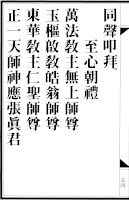 同聲叩拜
至心朝禮
萬法教主無上師尊
玉樞啟教皓翁師尊
東華教主仁聖師尊
正一天師神應張眞君